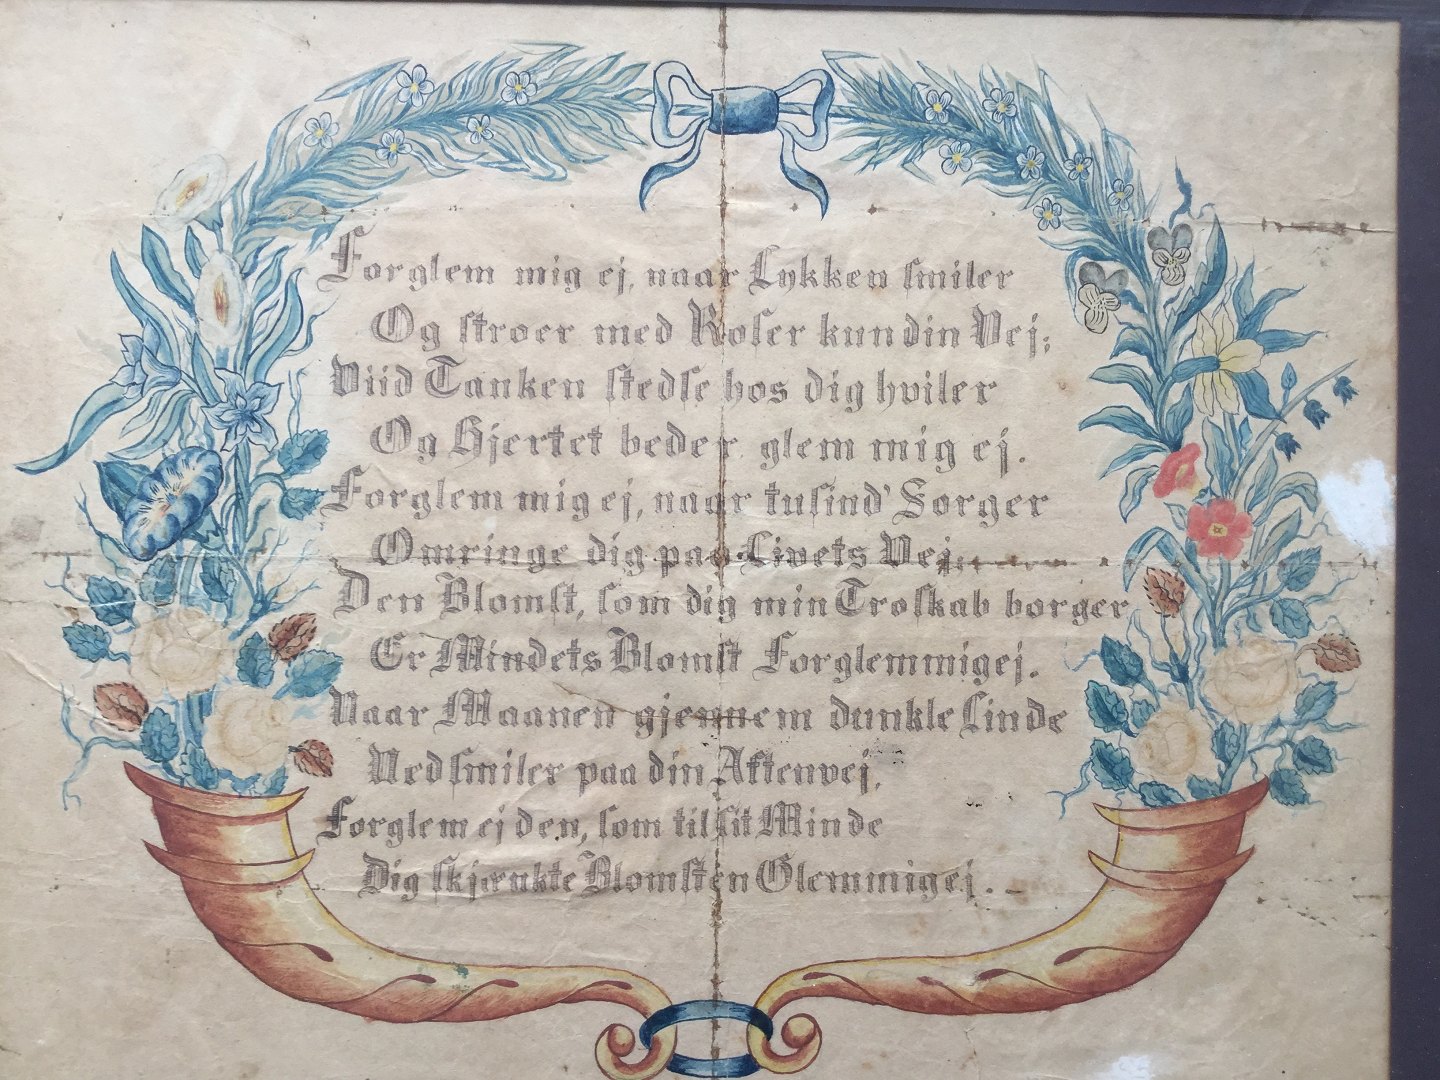 Forglem mig ej, naar Lykken smiler
Og stroer med Roser kun din Vej;
Viid Tanken stedse hos dig hviler
Og Hjertet beder glem mig ej.
Forglem mig ej, naar tusind' Sorger
Omringe dig paa Livets Vej,
Den Blomst, som dig min Troskab borger
Er Mindets Blomst Forglemmigej.
Naar Maanen gjennem dunkle Linde
Nedsmiler paa din Aftenvej,
Forglem ej den, som til sit Minde
Dig skjænkte Blomsten Glemmigej.